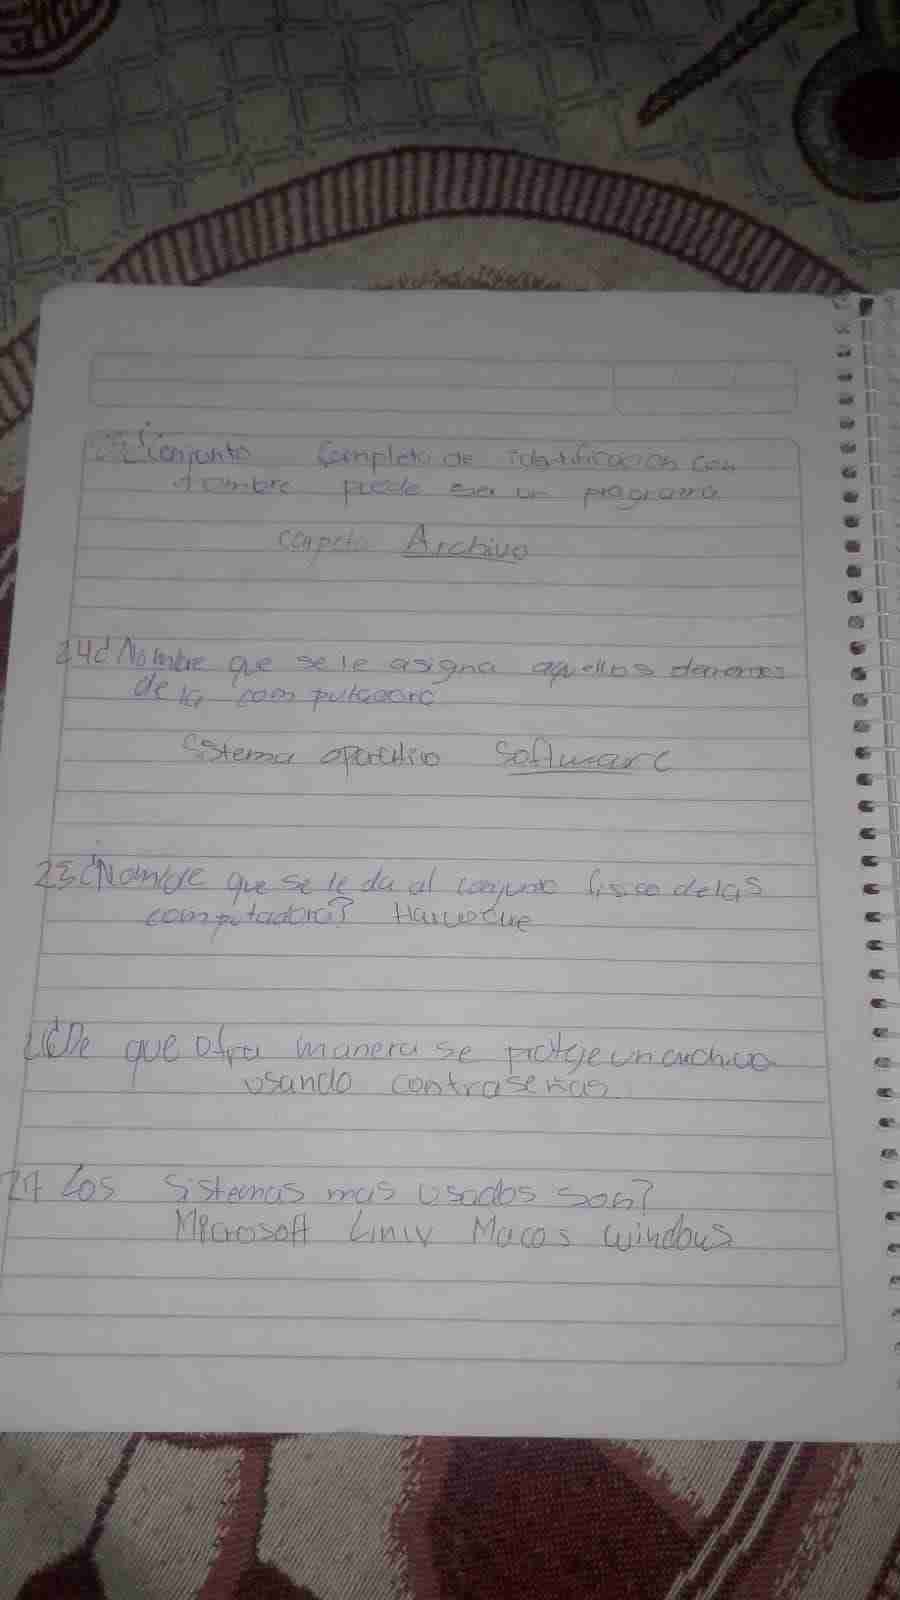 ¿Conjunto Completo de identificacion con
nombre puede ser un programa
carpeta Archivo
24¿ Nombre que se le asigna aquellos elementos
de la computadora
Sistema operativo Software
25¿Nombre que se le da al conjunto fisico de las
computadora? Harware
¿De que otra manera se protge un archivo
usando contraseñas
27 Los Sistemas mas usados son?
Microsoft Linix Macos windows